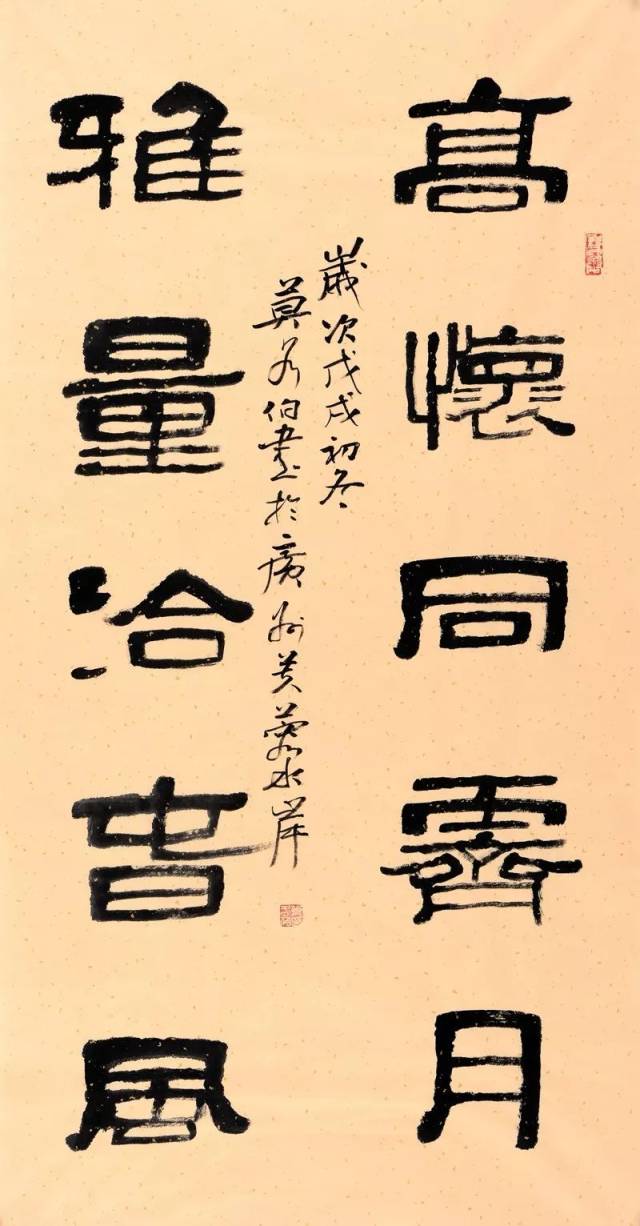 高懷同霽月
雅量洽旾風
歲次戊戌初冬
莫伯書於廣州芙蓉水岸